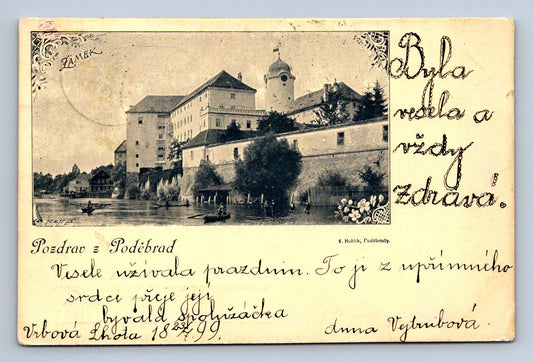 ZÁMEK
Byla
vesela a
vždy
zdrává.
Pozdrav z Poděbrad
V. Hublík, Poděbrady.
Vesele užívala prazdnin. To jí z upřímného
srdce přeje její
byvalá spolužáčka
Vrbová Lhota 18 23/7 99.
Anna Vytrubová.